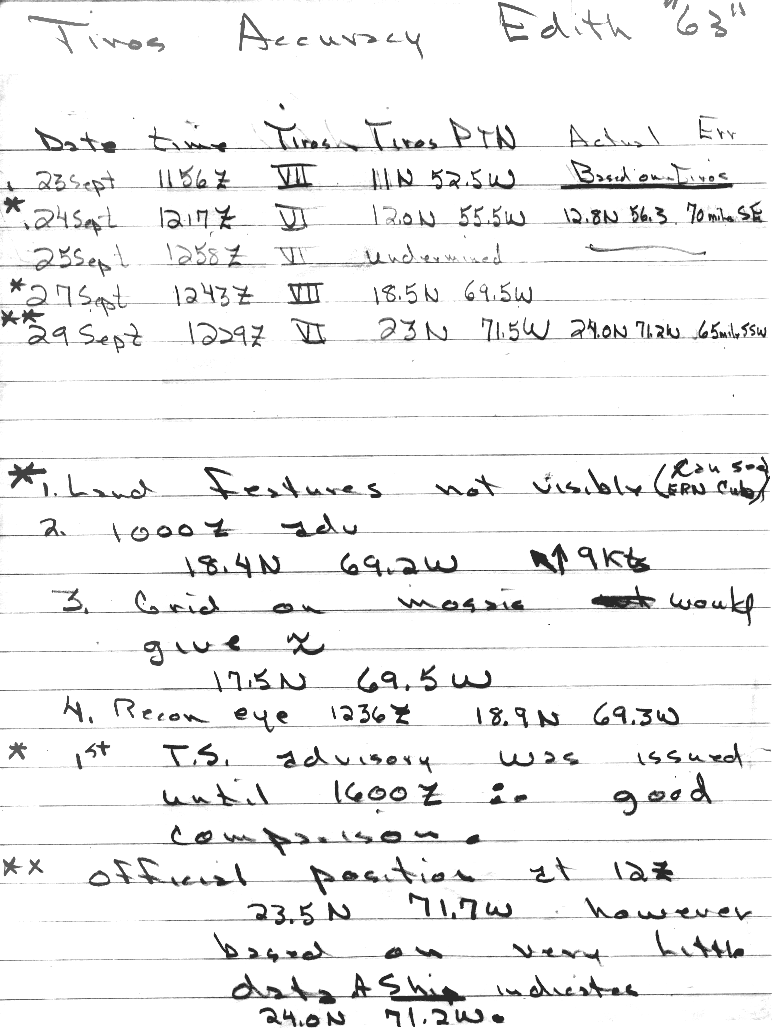 Tiros Accuracy Edith "63"
Date time Tiros Tiros PTN Actual Err
23 Sept 1156Z VII 11N 52.5W Based on Tiros
* 24 Sept 1217Z VI 12.0N 55.5W 12.8N 56.3 70 miles SE
25 Sept 1258Z VI undermined
* 27 Sept 1243Z VII 18.5N 69.5W
** 29 Sept 1229Z VI 23N 71.5W 24.0N 71.2W 65 mile SSW
* 1. Land features not visible (Can see
ERN Cuba)
2. 1000Z adv
18.4N 69.2W ↑ 9 Kts
3. Grid on mosaic would
give
17.5N 69.5W
4. Recon eye 1236Z 18.9N 69.3W
* 1st T.S. advisory was issued
until 1600Z ∴ good
comparison.
** official position at 12Z
23.5N 71.7W however
based on very little
data A Ship indicates
24.0N 71.2W.